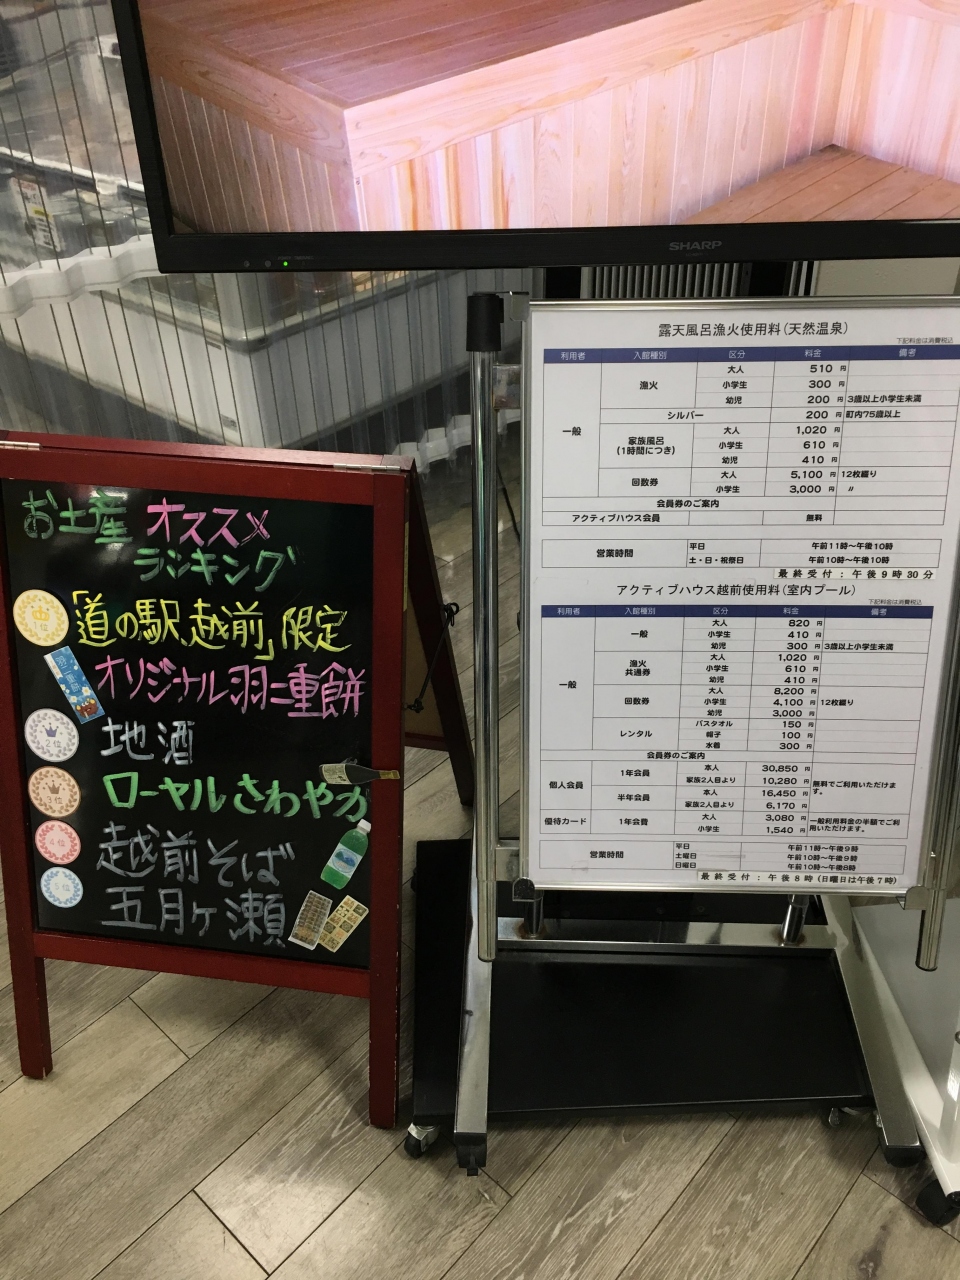 SHARP
お土産 オススメ
ランキング
1位
「道の駅 越前」限定
オリジナル羽二重餅
2位
地酒
3位
ローヤルさわやか
4位
越前そば
5位
五月ヶ瀬
露天風呂漁火使用料(天然温泉)
下記料金は消費税込
利用者 入館種別 区分 料金 備考
一般 漁火 大人 510 円
小学生 300 円
幼児 200 円 3歳以上小学生未満
シルバー 200 円 町内75歳以上
家族風呂 (1時間につき) 大人 1,020 円
小学生 610 円
幼児 410 円
回数券 大人 5,100 円 12枚綴り
小学生 3,000 円 〃
会員券のご案内
アクティブハウス会員 無料
営業時間 平日 午前11時〜午後10時
土・日・祝祭日 午前10時〜午後10時
最終受付:午後9時30分
アクティブハウス越前使用料(室内プール)
下記料金は消費税込
利用者 入館種別 区分 料金 備考
一般 一般 大人 820 円
小学生 410 円
幼児 300 円 3歳以上小学生未満
漁火 共通券 大人 1,020 円
小学生 610 円
幼児 410 円
回数券 大人 8,200 円 12枚綴り
小学生 4,100 円
幼児 3,000 円
レンタル バスタオル 150 円
帽子 100 円
水着 300 円
会員券のご案内
個人会員 1年会員 本人 30,850 円 無料でご利用いただけます。
家族2人目より 10,280 円
半年会員 本人 16,450 円
家族2人目より 6,170 円
優待カード 1年会費 大人 3,080 円 一般利用料金の半額でご利用いただけます。
小学生 1,540 円
営業時間 平日 午前11時〜午後9時
土曜日 午前10時〜午後9時
日曜日 午前10時〜午後8時
最終受付:午後8時(日曜日は午後7時)